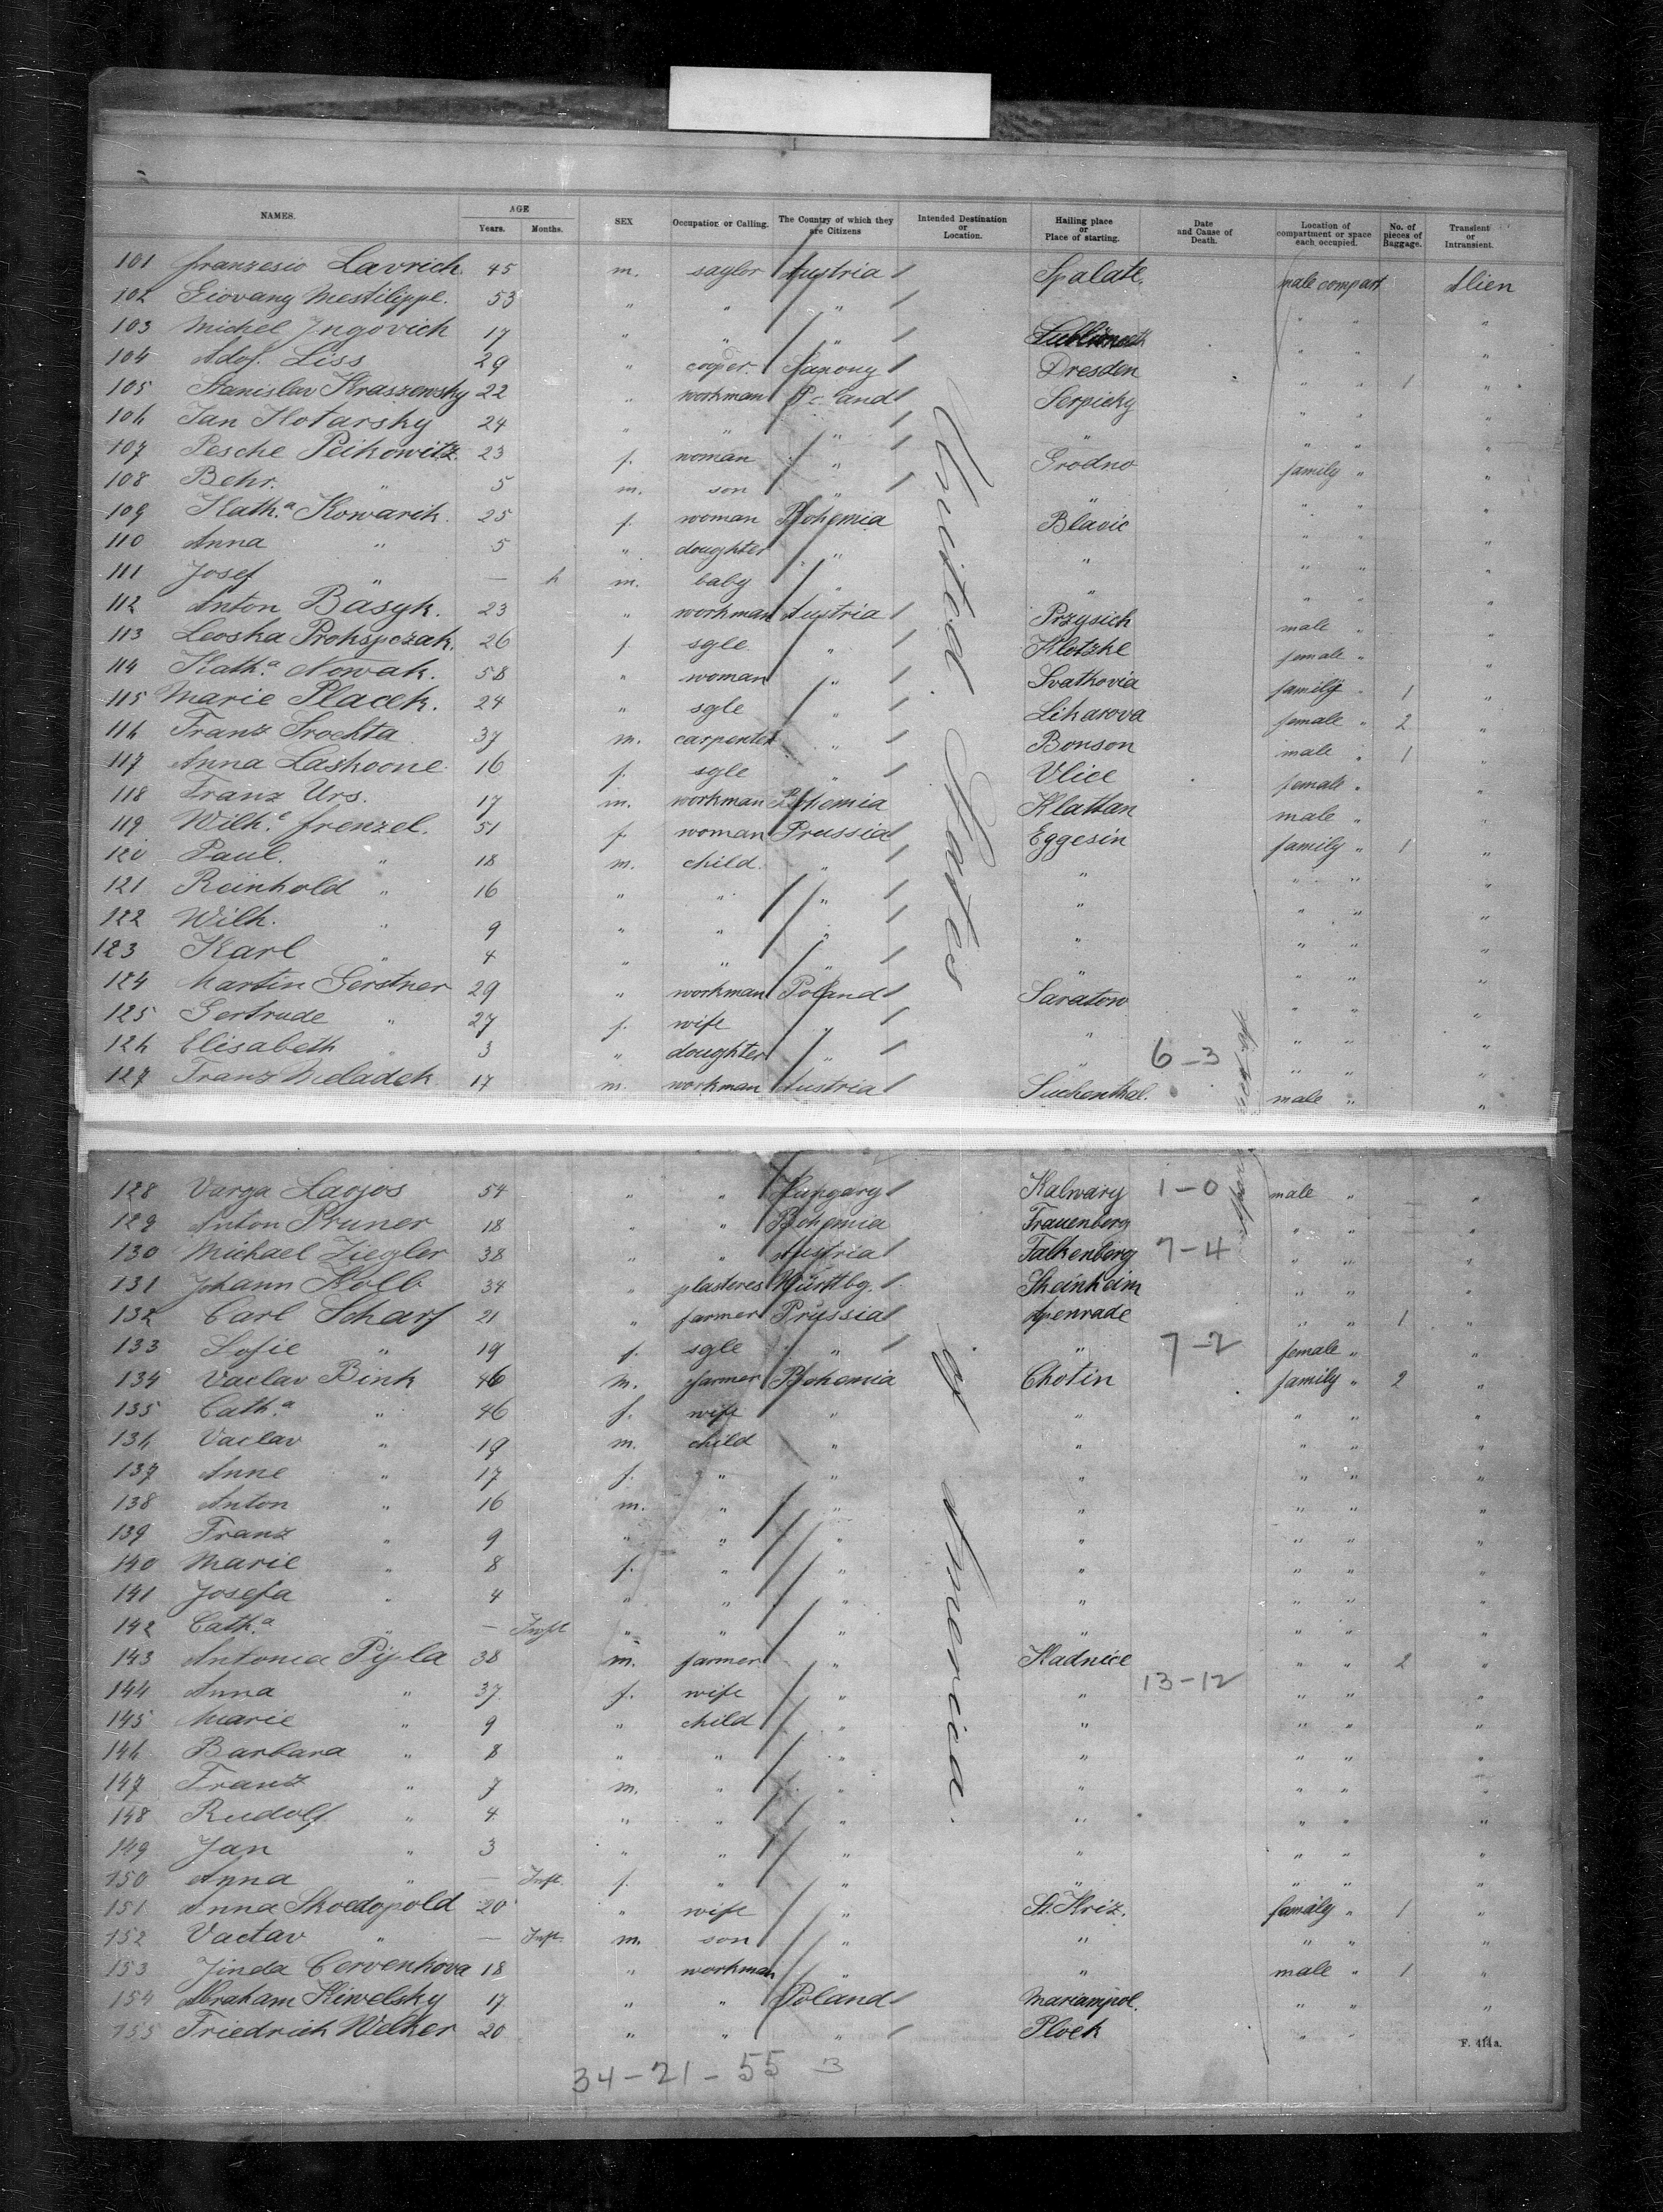 NAMES. AGE Years. Months. SEX Occupation or Calling. The Country of which they are Citizens Intended Destination or Location. Hailing place or Place of starting. Date and Cause of Death. Location of compartment or space each occupied. No. of pieces of Baggage. Transient or Intransient.
101 Franzesio Lavrich 45 m. saylor Austria Spalate. male compart Alien
102 Giovang Mestilippe. 53 " " " " " "
103 Michel Jngovich 17 " " " " " "
104 Adof. Liss 29 " cooper. Dresden " " 1 "
105 Stanislav Kraszewsky 22 " workman Poland Serpicky " " "
106 Jan Kotarsky 24 " " " " " " "
107 Pesche Peikowitz 23 f. woman " Grodno family " "
108 Behr. " 5 m. son " " " " "
109 Kath.a Kowarik. 25 f. woman Bohemia Blavic " " "
110 Anna " 5 " doughter " " " " "
111 Josef " — m. baby " " " " "
112 Anton Basyk. 23 " workman Austria Przysich male " "
113 Leoska Prokspczak. 26 f. sgle " Klotzke female " "
114 Kath.a Nowak. 58 " woman " Svathovia family " 1 "
115 Marie Placek. 24 " sgle " Likarova female " 2 "
116 Franz Srochta 37 m. carpenter " Bonson male " 1 "
117 Anna Laskoone 16 f. sgle " Vlice female " "
118 Franz Urs. 17 m. workman Bohemia Klattan male " "
119 Wilh.e Frenzel. 51 f. woman Prussia Eggesin family " 1 "
120 Paul. " 18 m. child " " " " "
121 Reinhold " 16 " " " " " " "
122 Wilh. " 9 " " " " " " "
123 Karl " 4 " " " " " " "
124 Martin Gerstner 29 " workman Poland Saratow " " "
125 Gertrude " 27 f. wife " " " " "
126 Elisabeth " 3 " doughter " " 6-3 " " "
127 Franz Meladek 17 m. workman Austria Suchenthal. male " "
United States of America.
128 Varga Lagos 54 " " Hungary Kalwary 1-0 male " "
129 Anton Pruner 18 " " Bohemia Frauenberg " " "
130 Michael Ziegler 38 " " Austria Falkenberg 7-4 " " "
131 Johann Kolb 34 " plasteres Württbg. Sheinheim " " "
132 Carl Scharf 21 " farmer Prussia Apenrade " " 1 "
133 Sofie " 19 f. sgle " " 7-2 female " "
134 Vaclav Bink 46 m. farmer Bohemia Chotin family " 2 "
135 Cath.a " 46 f. wife " " " " "
136 Vaclav " 19 m. child " " " " "
137 Anne " 17 f. " " " " " "
138 Anton " 16 m. " " " " " "
139 Franz " 9 " " " " " " "
140 Marie " 8 f. " " " " " "
141 Josefa " 4 " " " " " " "
142 Cath.a " — Inft " " " " " " "
143 Antonia Pijla 38 m. farmer " Kadnice " " 2 "
144 Anna " 37 f. wife " " 13-12 " " "
145 Marie " 9 " child " " " " "
146 Barbara " 8 " " " " " " "
147 Franz " 7 m. " " " " " "
148 Rudolf " 4 " " " " " " "
149 Jan " 3 " " " " " " "
150 Anna " — Inft. f. " " " " " "
151 Anna Skoedopold 20 " wife " St. Kriz. family " 1 "
152 Vactav " — Inft. m. son " " " " "
153 Jinda Cervenkova 18 " workman " " male " 1 "
154 Abraham Kiwelsky 17 " " Poland Mariampol. " " "
155 Friedrich Welker 20 " " " Plock " " "
F. 414a.
34-21-55 3